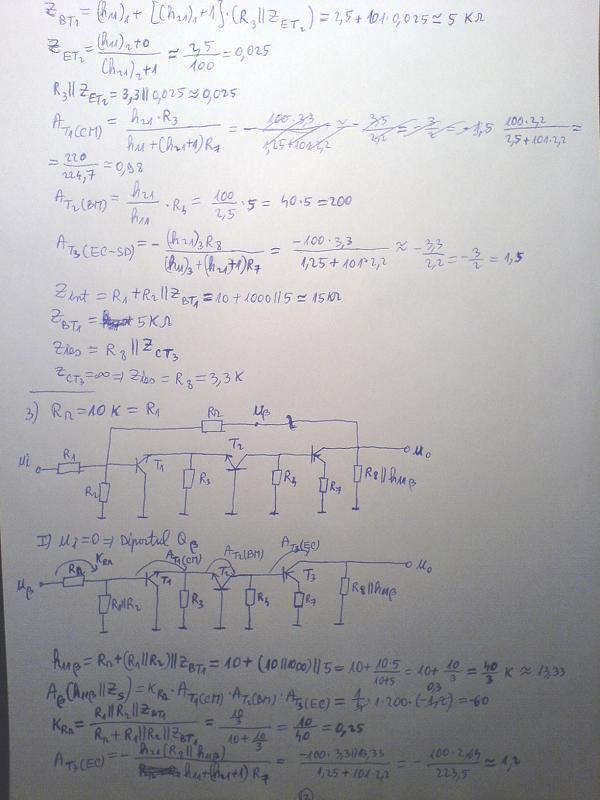 Z_BT1 = (h11)1 + [(h21)1+1]·(R3 || Z_ET2) = 2,5+101·0,025 ≃ 5 KΩ
Z_ET2 = (h11)2+0 / (h21)2+1 ≈ 2,5/100 = 0,025
R3 || Z_ET2 = 3,3 || 0,025 ≈ 0,025
A_T1(CM) = h21·R3 / h11+(h21+1)R7 = - 100·3,3 / 1,25+101·2,2 ≈ - 3,5/2,2 = -3/2 = -1,5 100·2,2 / 2,5+101·2,2 =
= 220/224,7 ≈ 0,98
A_T2(BM) = h21/h11 · R4 = 100/2,5 · 5 = 40·5 = 200
A_T3(EC-SD) = - (h21)3R8 / (h11)3+(h21+1)R7 = -100·3,3 / 1,25+101·2,2 ≈ -3,3/2,2 = -3/2 = 1,5
Zint = R1+R2 || Z_BT1 = 10+1000 || 5 ≃ 15KΩ
Z_BT1 = 5KΩ
Zies = R8 || Z_CT3
Z_CT3 = ∞ ⇒ Zies = R8 = 3,3 K
3) Rr = 10 K = R1
Rr uβ
ui R1 T1 T2 uo
R2 R3 R4 R7 R8||h11β
I) ui = 0 ⇒ Diportul Qβ
Rr K_Rr A_T1(CM) A_T2(BM) A_T3(EC) uo
uβ T1 T2 T3
R1||R2 R3 R4 R7 R8||h11β
h11β = Rr+(R1||R2)||Z_BT1 = 10+(10||1000)||5 = 10+ 10·5/10+5 = 10+ 10/3 = 40/3 K ≈ 13,33
Aβ(h11β||Zs) = K_Rr · A_T1(CM) · A_T2(BM) · A_T3(EC) = 1/4 · 1·200·(-1,2) = -60
K_Rr = R1||R2||Z_BT1 / Rr+R1||R2||Z_BT1 = 10/3 / 10+10/3 = 10/40 = 0,25
A_T3(EC) = - h21(R8||h11β) / h11+(h21+1)R7 = -100·3,3||13,33 / 1,25+101·2,2 = - 100·2,64 / 223,5 ≈ 1,2